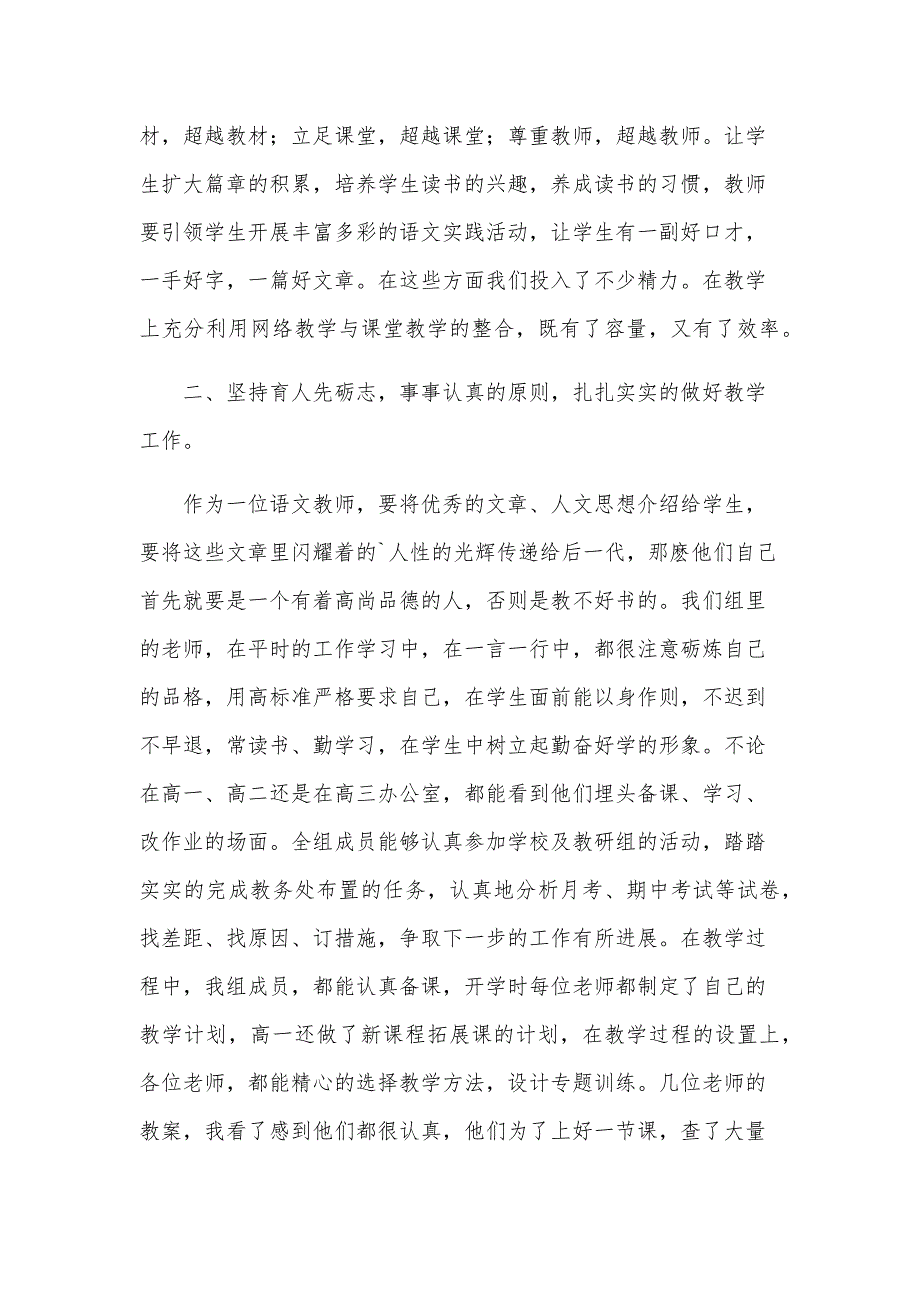 材，超越教材；立足课堂，超越课堂；尊重教师，超越教师。让学
生扩大篇章的积累，培养学生读书的兴趣，养成读书的习惯，教师
要引领学生开展丰富多彩的语文实践活动，让学生有一副好口才，
一手好字，一篇好文章。在这些方面我们投入了不少精力。在教学
上充分利用网络教学与课堂教学的整合，既有了容量，又有了效率。
二、坚持育人先砺志，事事认真的原则，扎扎实实的做好教学
工作。
作为一位语文教师，要将优秀的文章、人文思想介绍给学生，
要将这些文章里闪耀着的`人性的光辉传递给后一代，那麽他们自己
首先就要是一个有着高尚品德的人，否则是教不好书的。我们组里
的老师，在平时的工作学习中，在一言一行中，都很注意砺炼自己
的品格，用高标准严格要求自己，在学生面前能以身作则，不迟到
不早退，常读书、勤学习，在学生中树立起勤奋好学的形象。不论
在高一、高二还是在高三办公室，都能看到他们埋头备课、学习、
改作业的场面。全组成员能够认真参加学校及教研组的活动，踏踏
实实的完成教务处布置的任务，认真地分析月考、期中考试等试卷，
找差距、找原因、订措施，争取下一步的工作有所进展。在教学过
程中，我组成员，都能认真备课，开学时每位老师都制定了自己的
教学计划，高一还做了新课程拓展课的计划，在教学过程的设置上，
各位老师，都能精心的选择教学方法，设计专题训练。几位老师的
教案，我看了感到他们都很认真，他们为了上好一节课，查了大量